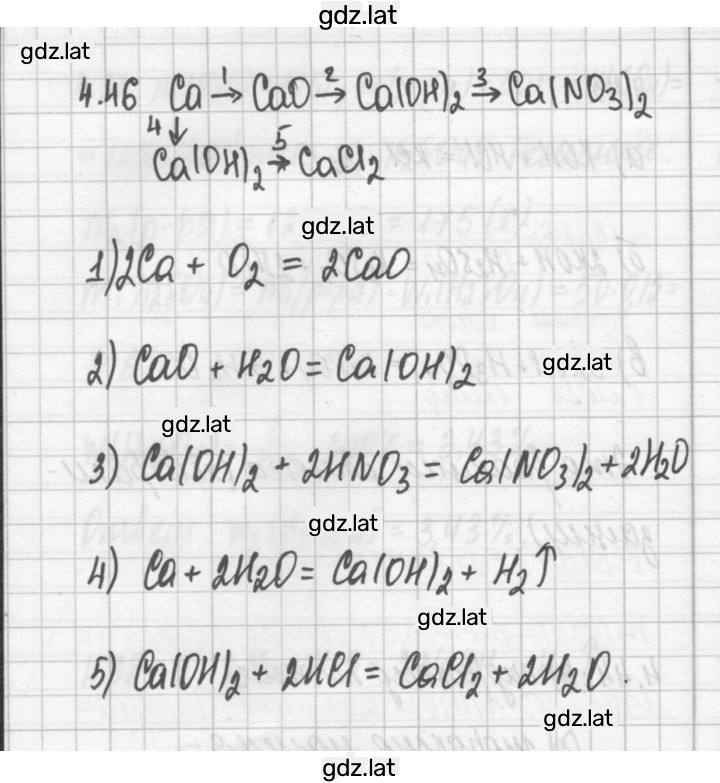 gdz.lat
gdz.lat
4.46 Ca →¹ CaO →² Ca(OH)₂ →³ Ca(NO₃)₂
4↓
Ca(OH)₂ →⁵ CaCl₂
gdz.lat
1) 2Ca + O₂ = 2CaO
2) CaO + H₂O = Ca(OH)₂
gdz.lat
gdz.lat
3) Ca(OH)₂ + 2HNO₃ = Ca(NO₃)₂ + 2H₂O
gdz.lat
4) Ca + 2H₂O = Ca(OH)₂ + H₂↑
gdz.lat
5) Ca(OH)₂ + 2HCl = CaCl₂ + 2H₂O.
gdz.lat
gdz.lat